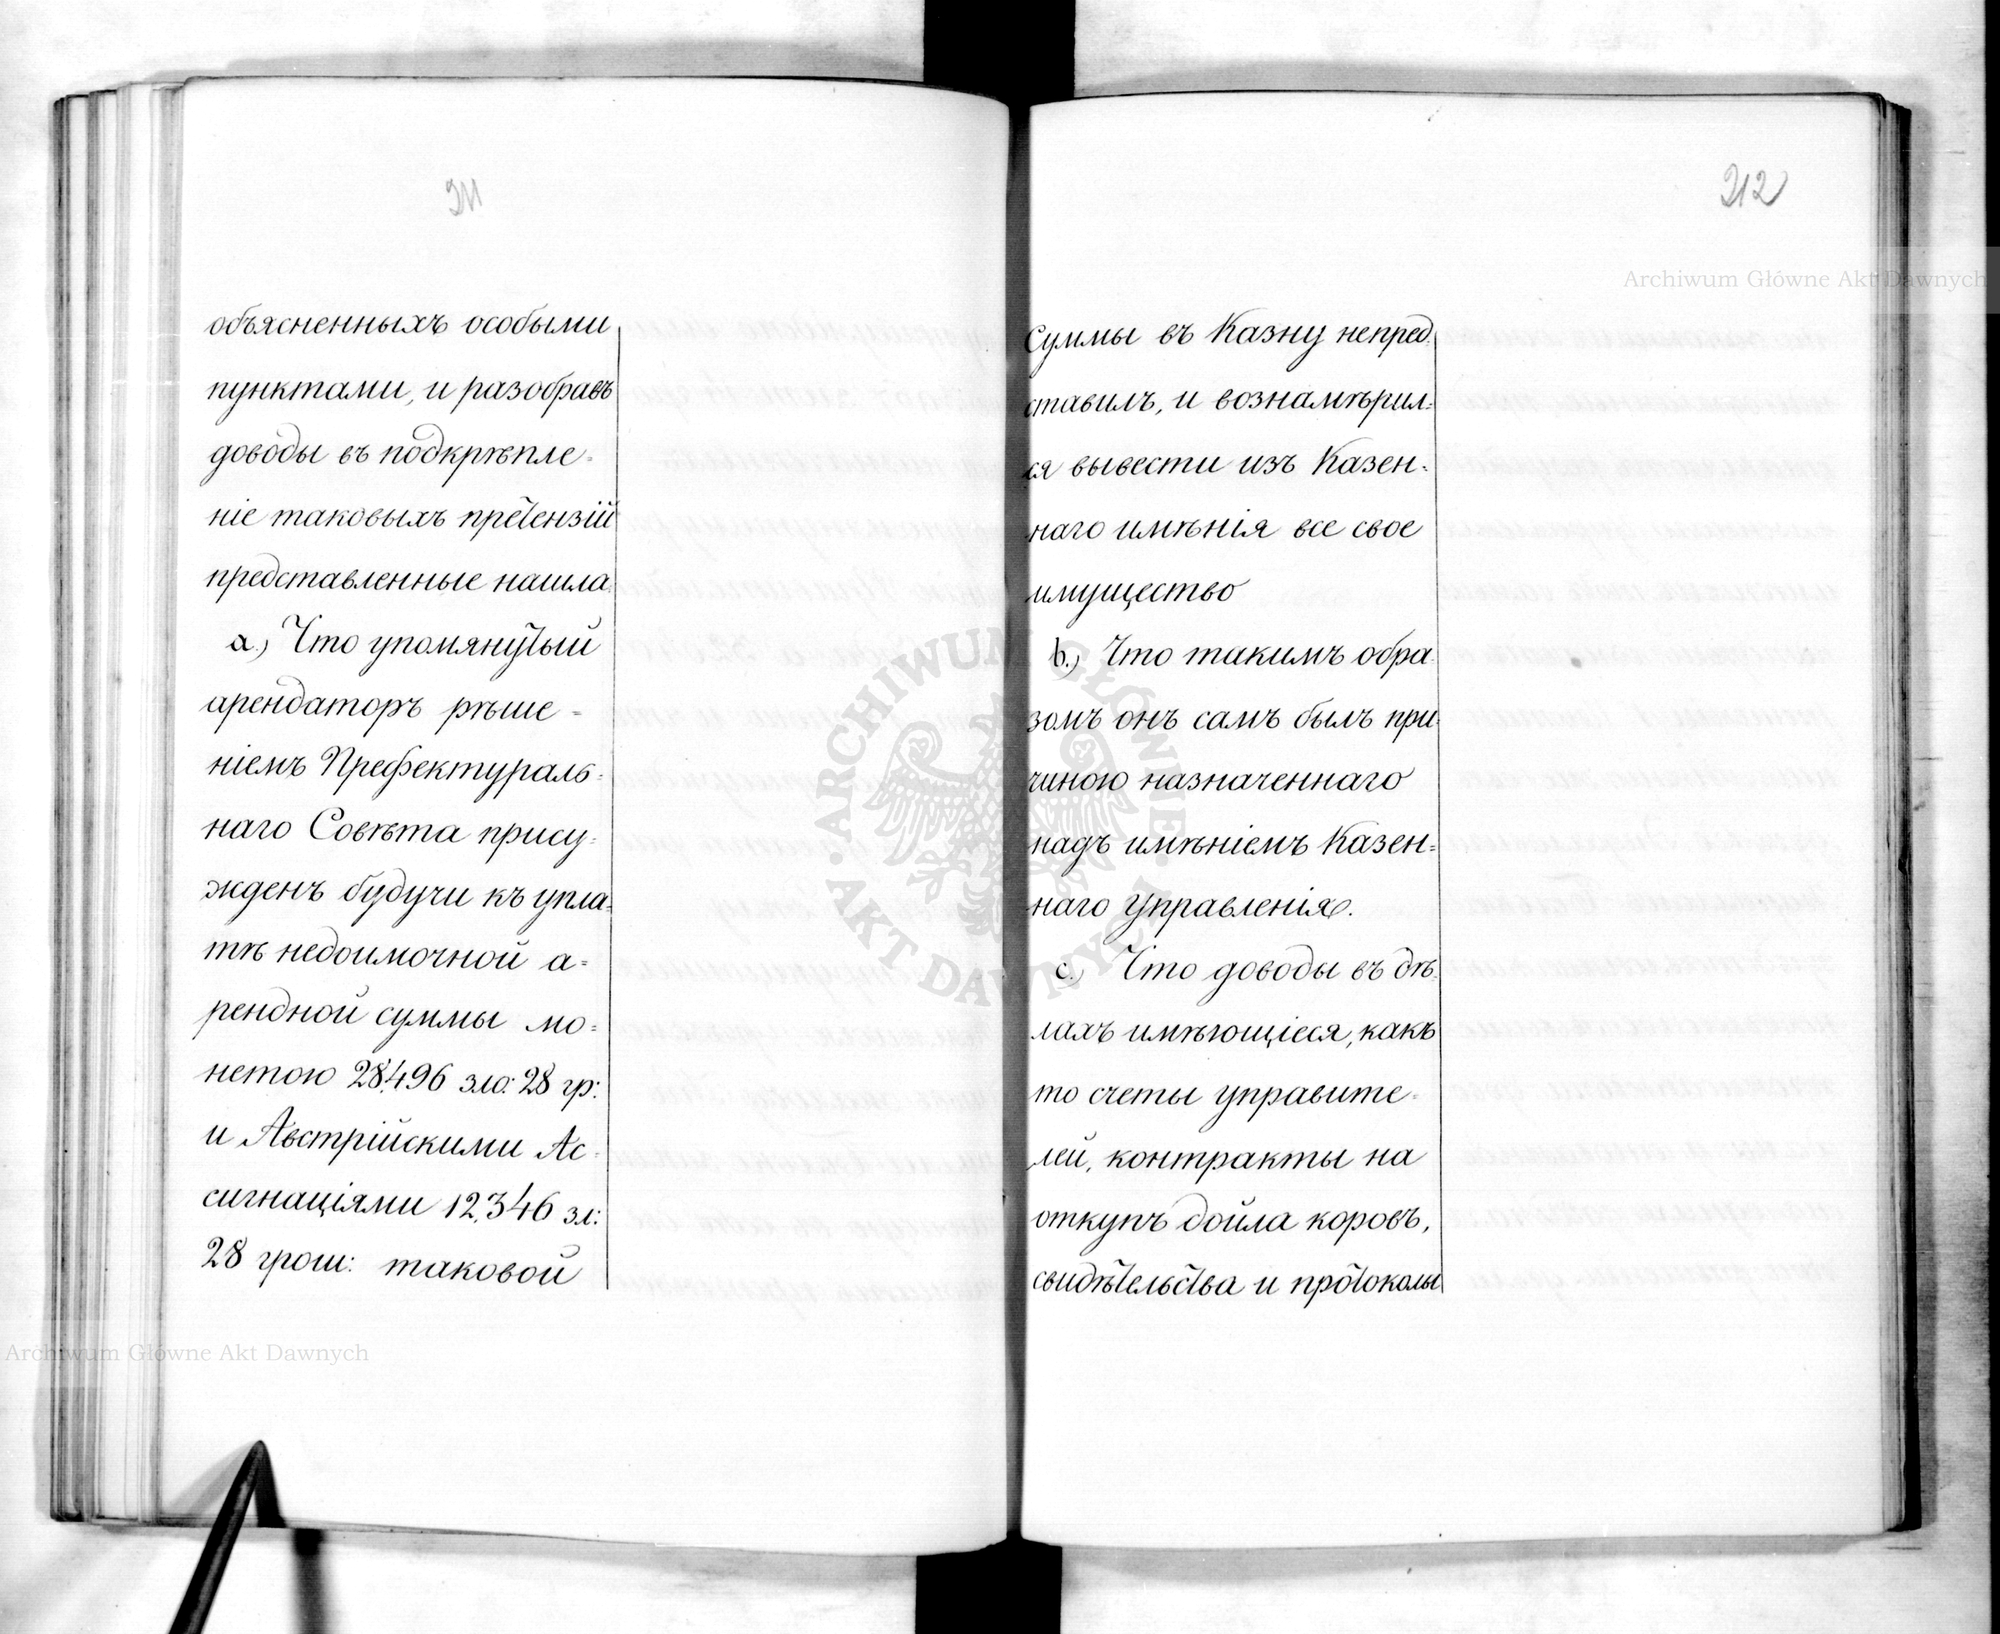 211
объясненныхъ особыми
пунктами, и разобравъ
доводы въ подкрѣпле-
ніе таковыхъ претензій
представленные нашла
a.) Что упомянутый
арендаторъ рѣше-
ніемъ Префектураль-
наго Совѣта прису-
жденъ будучи къ упла-
тѣ недоимочной а-
рендной суммы мо-
нетою 28,496 зло: 28 гр:
и Австрійскими Ас-
сигнаціями 12,346 зл:
28 грош: таковой
212
Суммы въ Казну непред-
ставилъ, и вознамѣрил-
ся вывести изъ Казен-
наго имѣнія все свое
имущество
b.) Что такимъ обра-
зомъ онъ самъ былъ при-
чиною назначеннаго
надъ имѣніемъ Казен-
наго Управленія.
c.) Что доводы въ дѣ-
лахъ имѣющіеся, какъ
то счеты управите-
лей, контракты на
откупъ дойла коровъ,
свидѣтельства и протоколы
Archiwum Główne Akt Dawnych
Archiwum Główne Akt Dawnych
ARCHIWUM GŁÓWNE AKT DAWNYCH